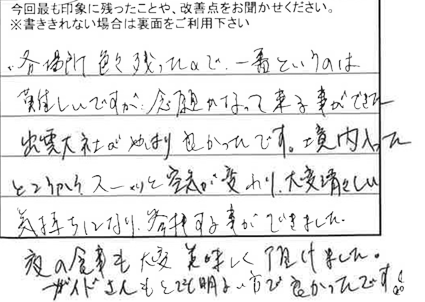 今回最も印象に残ったことや、改善点をお聞かせください。
※書ききれない場合は裏面をご利用下さい
各場所 色々残ったので、一番というのは
難しいですが、念願かなって来る事ができた
出雲大社がやはり良かったです。境内入った
ところから、スーッと空気が変わり、大変清々しい
気持ちになり、参拝する事ができました。
夜の食事も大変美味しく頂けました。
ガイドさんもとても明るい方で良かったです。